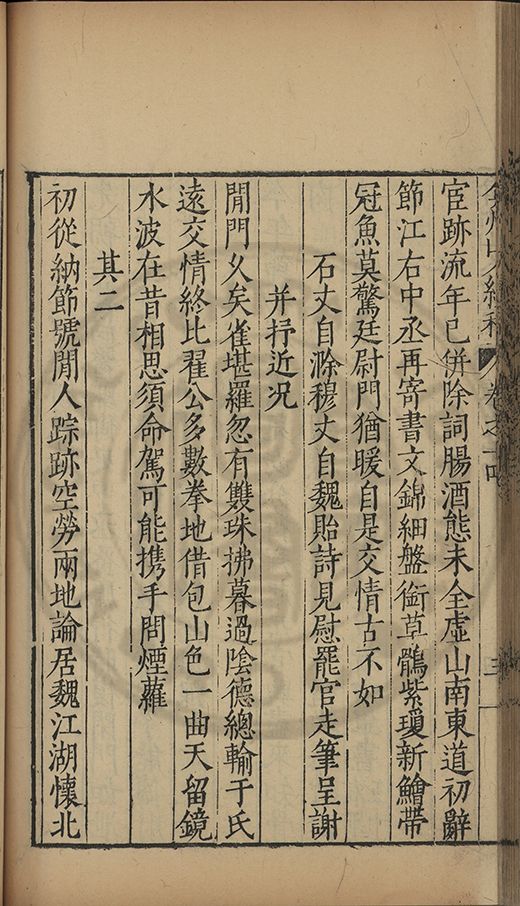 弇州山人續稿 卷之十四 三
宦跡流年已併除詞腸酒態未全虛山南東道初辭
節江右中丞再寄書文錦細盤銜草鶻紫瓊新鱠帶
冠魚莫驚廷尉門猶暖自是交情古不如
石丈自滁穆丈自魏貽詩見慰罷官走筆呈謝
并抒近况
閒門乆矣雀堪羅忽有雙珠拂暮過陰德總輸于氏
遠交情終比翟公多數拳地借包山色一曲天留鏡
水波在昔相思須命駕可能携手問煙蘿
其二
初從納節號閒人踪跡空勞兩地論居魏江湖懷北